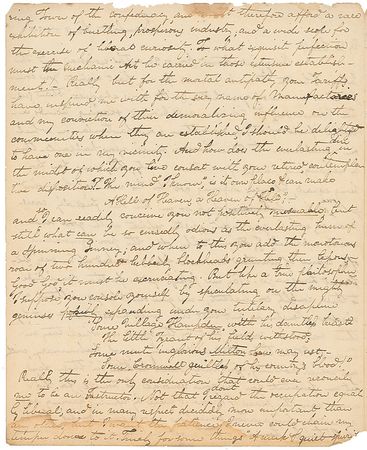 ring Town of the confederacy, and must therefore afford a rare
exhibition of bustling, prosperous industry, and a wide scope for
the exercise of liberal curiosity. To what exquisit perfection
must the mechanic Arts be carried in those extensive establish-
ments — Really but for the mortal antipathy your Tariffs
have inspired me with for the very name of Manufactories
and my conviction of their demoralizing influence on the
communities when they are established, I should be delighted
to have one in my vicinity. And how does the everlasting din
the midst of which you live consort with your retired, contempla-
tive disposition. The mind I know, is its own place & can make
A Hell of Heaven, a Heaven of Hell; —
and I can readily conceive you not positively miserable. But
still what can be so cursedly odious as the everlasting hum of
a Spinning Jenney, and when to this you add the monotonous
roar of two hundred blockheads grunting their lepons —
Good God it must be excruciating. But like a true philosopher
I suppose you console yourself by speculating on the mighty
geniuses expanding under your tutelary discipline
Some village Hampden, with his dauntless breast
The little Tyrant of his field withstood;
Some mute inglorious Milton here may rest —
Some Cromwell guiltless of his country's blood."
Really this is the only consolation that could ever reconcile
me to be an Instructor. Not that I regard the occupation equal
ly liberal, and in many respect decidedly more important than
any other but I want the patience. I never could chain my
temper down to it. Timely for some things. A meek & quiet spirit